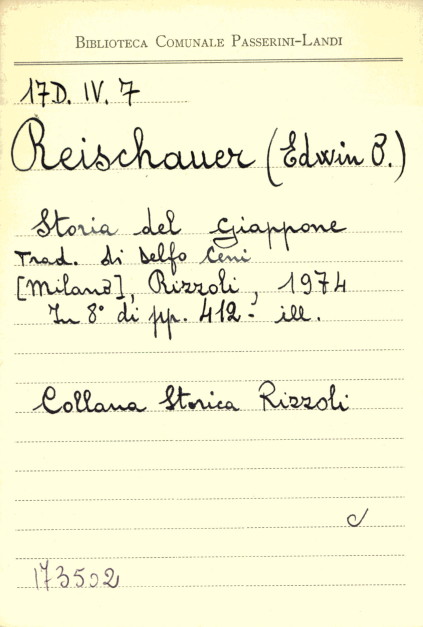 BIBLIOTECA COMUNALE PASSERINI-LANDI
17D. IV. 7
Reischauer (Edwin O.)
Storia del Giappone
Trad. di Delfo Ceni
[Milano], Rizzoli, 1974
In 8° di pp. 412 - ill.
Collana Storica Rizzoli
173502